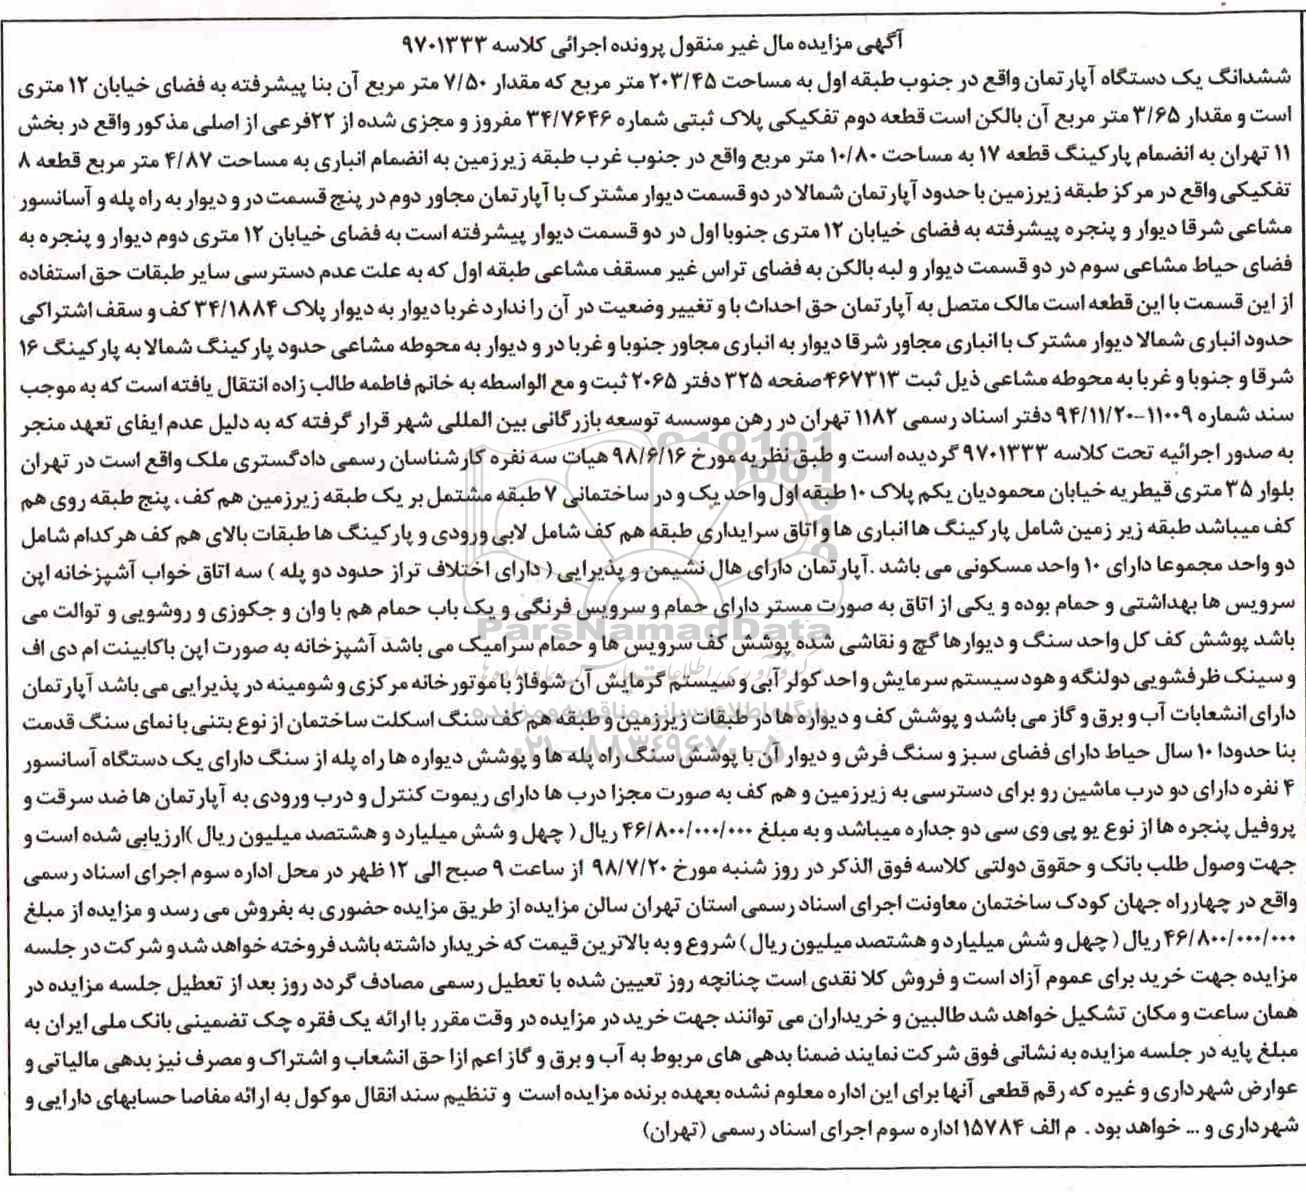 آگهی مزایده مال غیر منقول پرونده اجرائی کلاسه ۹۷۰۱۳۳۳
ششدانگ یک دستگاه آپارتمان واقع در جنوب طبقه اول به مساحت ۲۰۳/۴۵ متر مربع که مقدار ۷/۵۰ متر مربع آن بنا پیشرفته به فضای خیابان ۱۲ متری
است و مقدار ۳/۶۵ متر مربع آن بالکن است قطعه دوم تفکیکی پلاک ثبتی شماره ۳۴/۷۶۴۶ مفروز و مجزی شده از ۲۲فرعی از اصلی مذکور واقع در بخش
۱۱ تهران به انضمام پارکینگ قطعه ۱۷ به مساحت ۱۰/۸۰ متر مربع واقع در جنوب غرب طبقه زیرزمین به انضمام انباری به مساحت ۴/۸۷ متر مربع قطعه ۸
تفکیکی واقع در مرکز طبقه زیرزمین با حدود آپارتمان شمالا در دو قسمت دیوار مشترک با آپارتمان مجاور دوم در پنج قسمت در و دیوار به راه پله و آسانسور
مشاعی شرقا دیوار و پنجره پیشرفته به فضای خیابان ۱۲ متری جنوبا اول در دو قسمت دیوار پیشرفته است به فضای خیابان ۱۲ متری دوم دیوار و پنجره به
فضای حیاط مشاعی سوم در دو قسمت دیوار و لبه بالکن به فضای تراس غیر مسقف مشاعی طبقه اول که به علت عدم دسترسی سایر طبقات حق استفاده
از این قسمت با این قطعه است مالک متصل به آپارتمان حق احداث با و تغییر وضعیت در آن را ندارد غربا دیوار به دیوار پلاک ۳۴/۱۸۸۴ کف و سقف اشتراکی
حدود انباری شمالا دیوار مشترک با انباری مجاور شرقا دیوار به انباری مجاور جنوبا و غربا در و دیوار به محوطه مشاعی حدود پارکینگ شمالا به پارکینگ ۱۶
شرقا و جنوبا و غربا به محوطه مشاعی ذیل ثبت ۴۶۷۳۱۳صفحه ۳۲۵ دفتر ۲۰۶۵ ثبت و مع الواسطه به خانم فاطمه طالب زاده انتقال یافته است که به موجب
سند شماره ۱۱۰۰۹-۹۴/۱۱/۲۰ دفتر اسناد رسمی ۱۱۸۲ تهران در رهن موسسه توسعه بازرگانی بین المللی شهر قرار گرفته که به دلیل عدم ایفای تعهد منجر
به صدور اجرائیه تحت کلاسه ۹۷۰۱۳۳۳ گردیده است و طبق نظریه مورخ ۹۸/۶/۱۶ هیات سه نفره کارشناسان رسمی دادگستری ملک واقع است در تهران
بلوار ۳۵ متری قیطریه خیابان محمودیان یکم پلاک ۱۰ طبقه اول واحد یک و در ساختمانی ۷ طبقه مشتمل بر یک طبقه زیرزمین هم کف، پنج طبقه روی هم
کف میباشد طبقه زیر زمین شامل پارکینگ ها انباری ها و اتاق سرایداری طبقه هم کف شامل لابی ورودی و پارکینگ ها طبقات بالای هم کف هر کدام شامل
دو واحد مجموعا دارای ۱۰ واحد مسکونی می باشد .آپارتمان دارای هال نشیمن و پذیرایی ( دارای اختلاف تراز حدود دو پله ) سه اتاق خواب آشپزخانه اپن
سرویس ها بهداشتی و حمام بوده و یکی از اتاق به صورت مستر دارای حمام و سرویس فرنگی و یک باب حمام هم با وان و جکوزی و روشویی و توالت می
باشد پوشش کف کل واحد سنگ و دیوارها گچ و نقاشی شده پوشش کف سرویس ها و حمام سرامیک می باشد آشپزخانه به صورت اپن باکابینت ام دی اف
و سینک ظرفشویی دولنگه و هود سیستم سرمایش واحد کولر آبی و سیستم گرمایش آن شوفاژ با موتورخانه مرکزی و شومینه در پذیرایی می باشد آپارتمان
دارای انشعابات آب و برق و گاز می باشد و پوشش کف و دیواره ها در طبقات زیرزمین و طبقه هم کف سنگ اسکلت ساختمان از نوع بتنی با نمای سنگ قدمت
بنا حدودا ۱۰ سال حیاط دارای فضای سبز و سنگ فرش و دیوار آن با پوشش سنگ راه پله ها و پوشش دیواره ها راه پله از سنگ دارای یک دستگاه آسانسور
۴ نفره دارای دو درب ماشین رو برای دسترسی به زیرزمین و هم کف به صورت مجزا درب ها دارای ریموت کنترل و درب ورودی به آپارتمان ها ضد سرقت و
پروفیل پنجره ها از نوع یو پی وی سی دو جداره میباشد و به مبلغ ۴۶/۸۰۰/۰۰۰/۰۰۰ ریال ( چهل و شش میلیارد و هشتصد میلیون ریال )ارزیابی شده است و
جهت وصول طلب بانک و حقوق دولتی کلاسه فوق الذکر در روز شنبه مورخ ۹۸/۷/۲۰ از ساعت ۹ صبح الی ۱۲ ظهر در محل اداره سوم اجرای اسناد رسمی
واقع در چهارراه جهان کودک ساختمان معاونت اجرای اسناد رسمی استان تهران سالن مزایده از طریق مزایده حضوری به بفروش می رسد و مزایده از مبلغ
۴۶/۸۰۰/۰۰۰/۰۰۰ ریال ( چهل و شش میلیارد و هشتصد میلیون ریال ) شروع و به بالاترین قیمت که خریدار داشته باشد فروخته خواهد شد و شرکت در جلسه
مزایده جهت خرید برای عموم آزاد است و فروش کلا نقدی است چنانچه روز تعیین شده با تعطیل رسمی مصادف گردد روز بعد از تعطیل جلسه مزایده در
همان ساعت و مکان تشکیل خواهد شد طالبین و خریداران می توانند جهت خرید در مزایده در وقت مقرر با ارائه یک فقره چک تضمینی بانک ملی ایران به
مبلغ پایه در جلسه مزایده به نشانی فوق شرکت نمایند ضمنا بدهی های مربوط به آب و برق و گاز اعم ازا حق انشعاب و اشتراک و مصرف نیز بدهی مالیاتی و
عوارض شهرداری و غیره که رقم قطعی آنها برای این اداره معلوم نشده بعهده برنده مزایده است و تنظیم سند انقال موکول به ارائه مفاصا حسابهای دارایی و
شهرداری و ... خواهد بود . م الف ۱۵۷۸۴ اداره سوم اجرای اسناد رسمی (تهران)
ParsNamadData
پایگاه اطلاع رسانی مناقصه و مزایده
۰۲۱-۸۸۳۴۹۶۷۰-۵